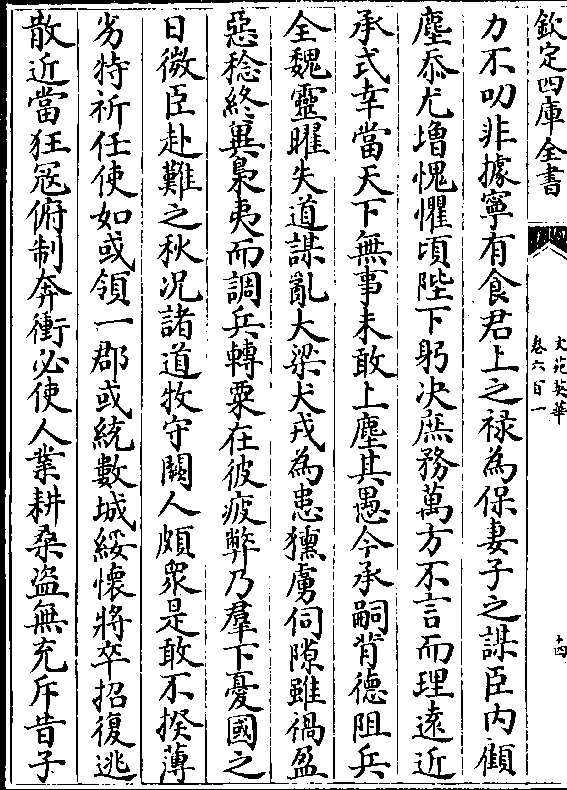 欽定四庫全書
文苑英華
卷六百一
十四
力不叨非據寧有食君上之禄為保妻子之謀臣内顧
塵忝尤增愧懼頃陛下躬決庶務萬方不言而理遠近
承式幸當天下無事未敢上塵其愚今承嗣背德阻兵
全魏靈曜失道謀亂大梁犬戎為患獯虜伺隙雖禍盈
惡稔終異梟夷而調兵轉粟在彼疲弊乃羣下憂國之
日微臣赴難之秋况諸道牧守闕人頗衆是敢不揆薄
劣特祈任使如或領一郡或統數城綏懷將卒招復逃
散近當狂冦俯制奔衝必使人業耕桑盗無充斥昔子